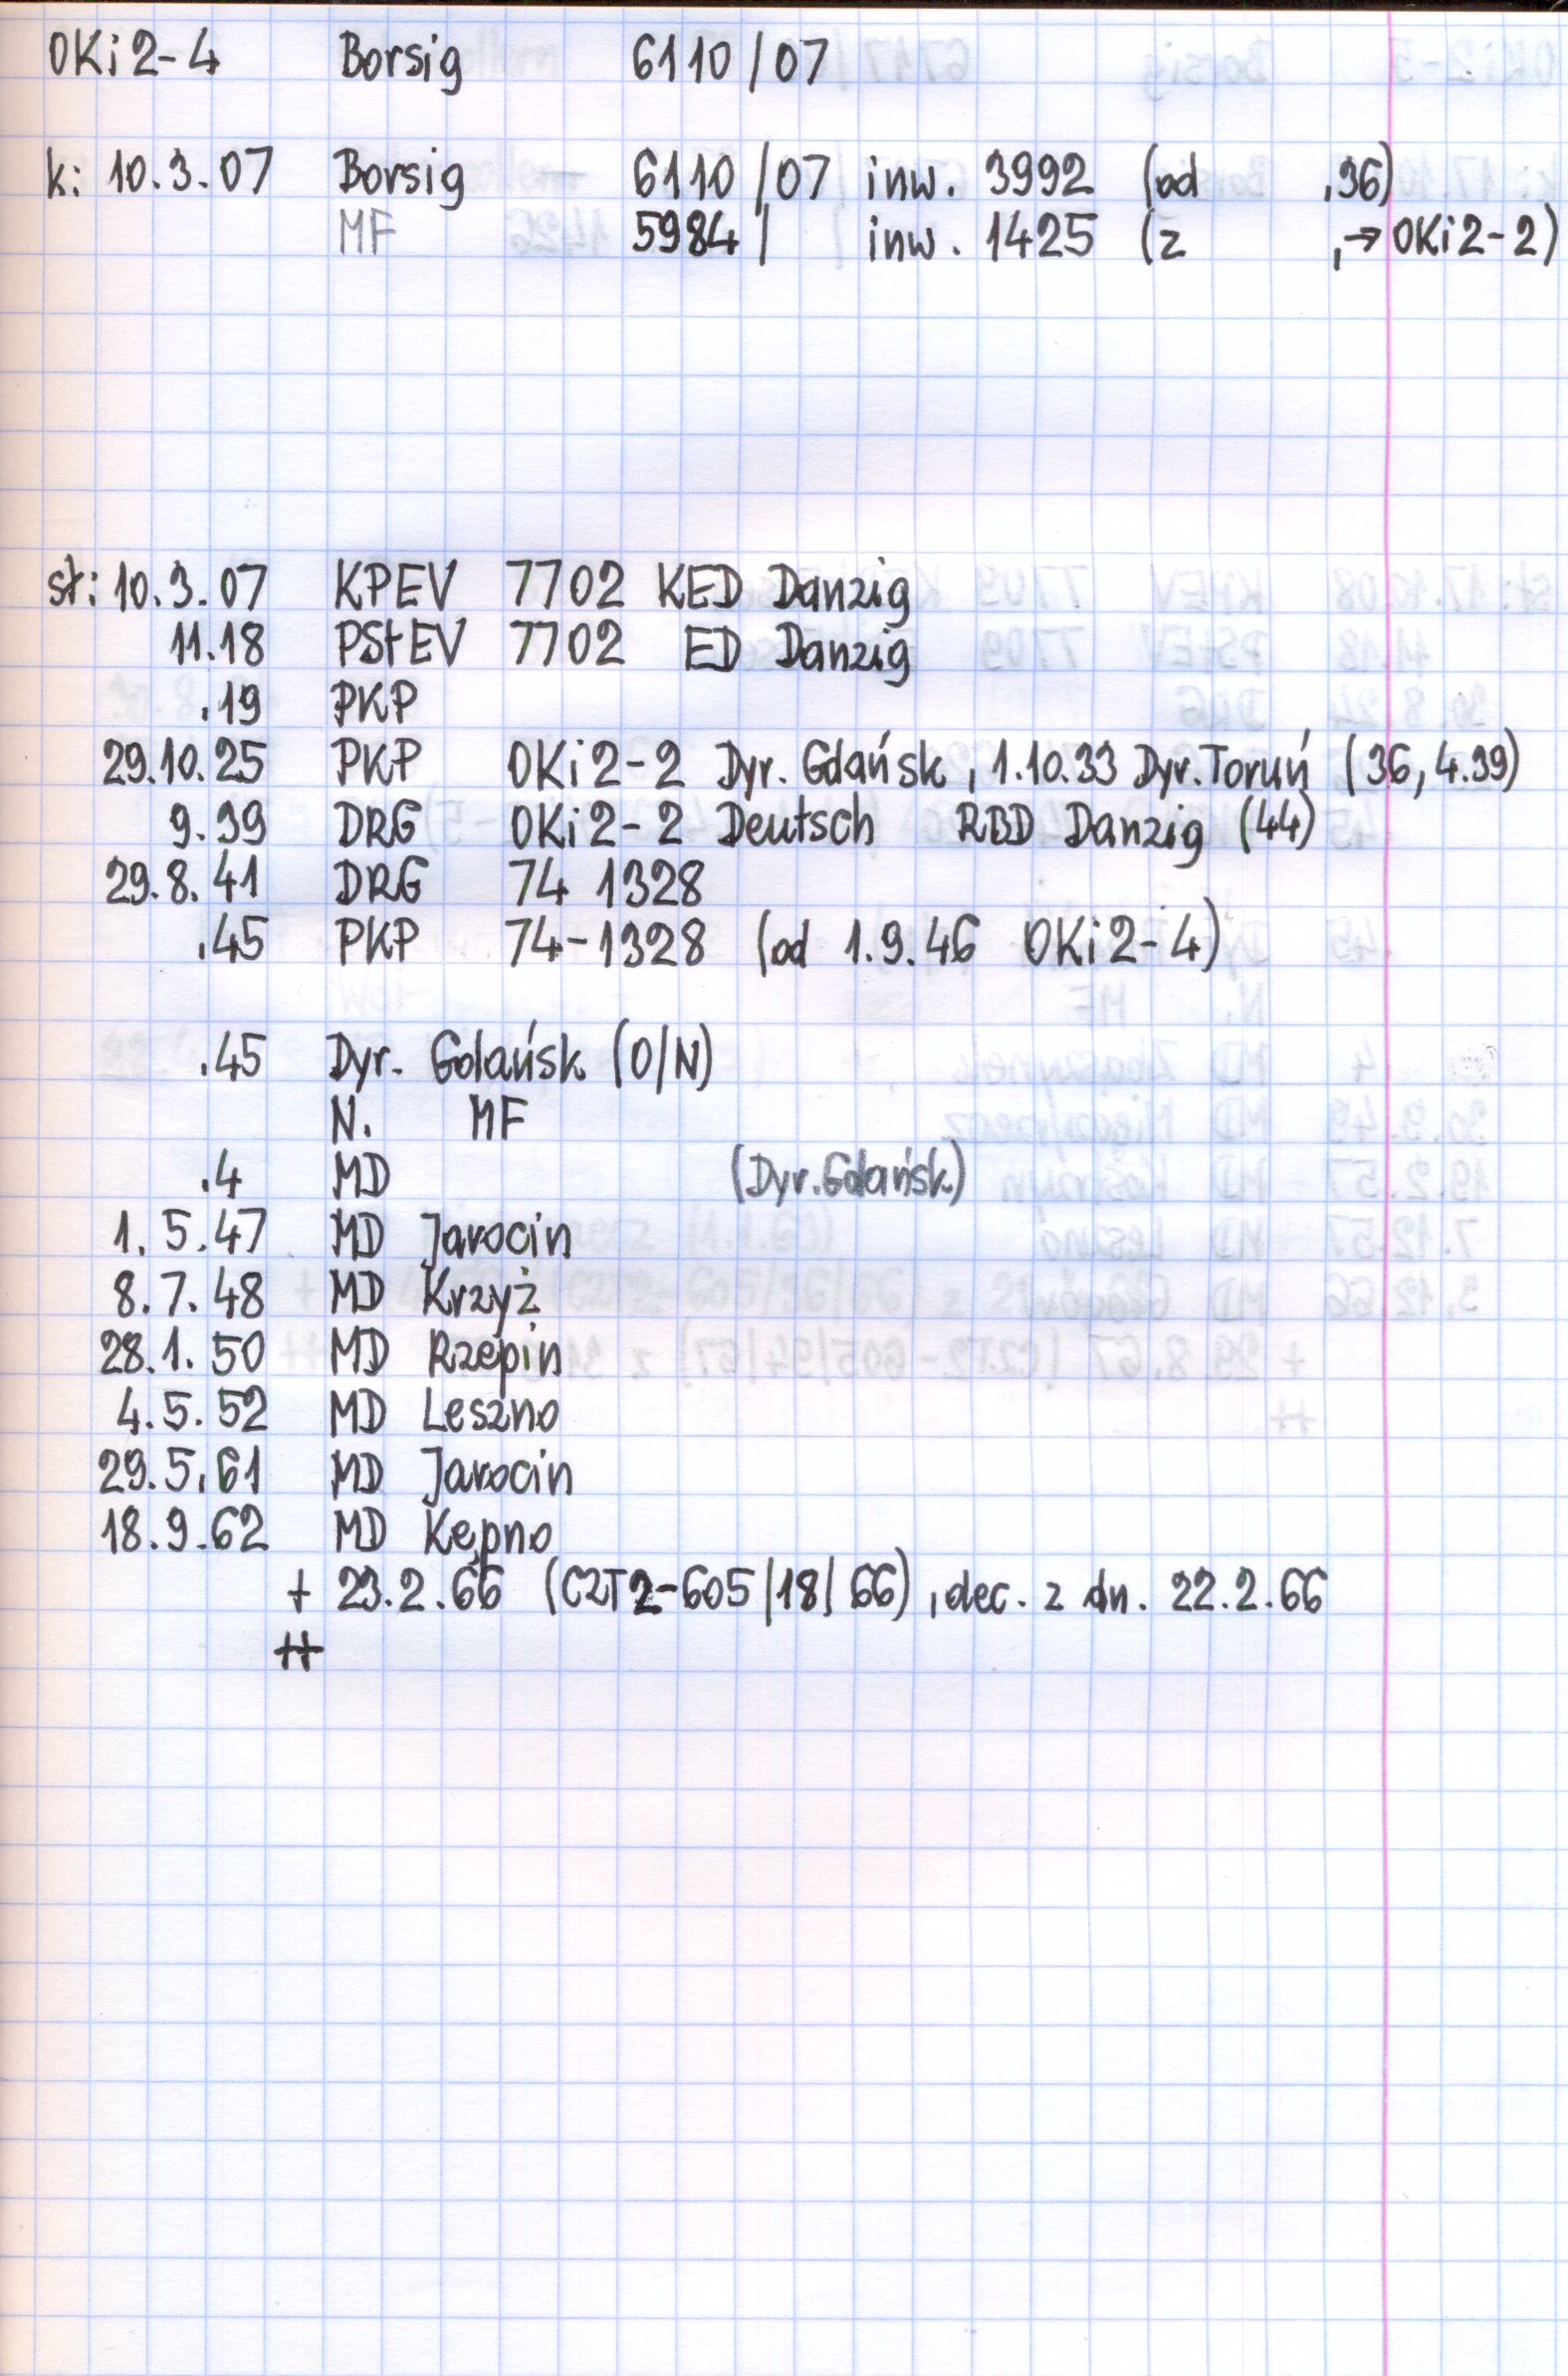 OKi2-4 Borsig 6110/07
k: 10.3.07 Borsig 6110/07 inw. 3992 (od .36)
MF 5984/ inw. 1425 (z , → OKi2-2)
st: 10.3.07 KPEV 7702 KED Danzig
11.18 PStEV 7702 ED Danzig
.19 PKP
29.10.25 PKP OKi2-2 Dyr. Gdańsk, 1.10.33 Dyr. Toruń (36, 4.39)
9.39 DRG OKi2-2 Deutsch RBD Danzig (44)
29.8.41 DRG 74 1328
.45 PKP 74-1328 (od 1.9.46 OKi2-4)
.45 Dyr. Gdańsk (O/N)
N. MF
.4 MD (Dyr. Gdańsk)
1.5.47 MD Jarocin
8.7.48 MD Krzyż
28.1.50 MD Rzepin
4.5.52 MD Leszno
29.5.61 MD Jarocin
18.9.62 MD Kępno
+ 23.2.66 (C2T2-605/18/66), dec. z dn. 22.2.66
++